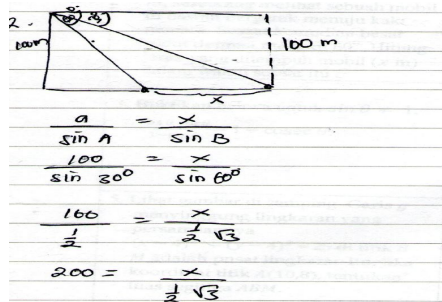 2.
100m
100 m
x
a / sin A = x / sin B
100 / sin 30° = x / sin 60°
100 / ½ = x / ½ √3
200 = x / ½ √3